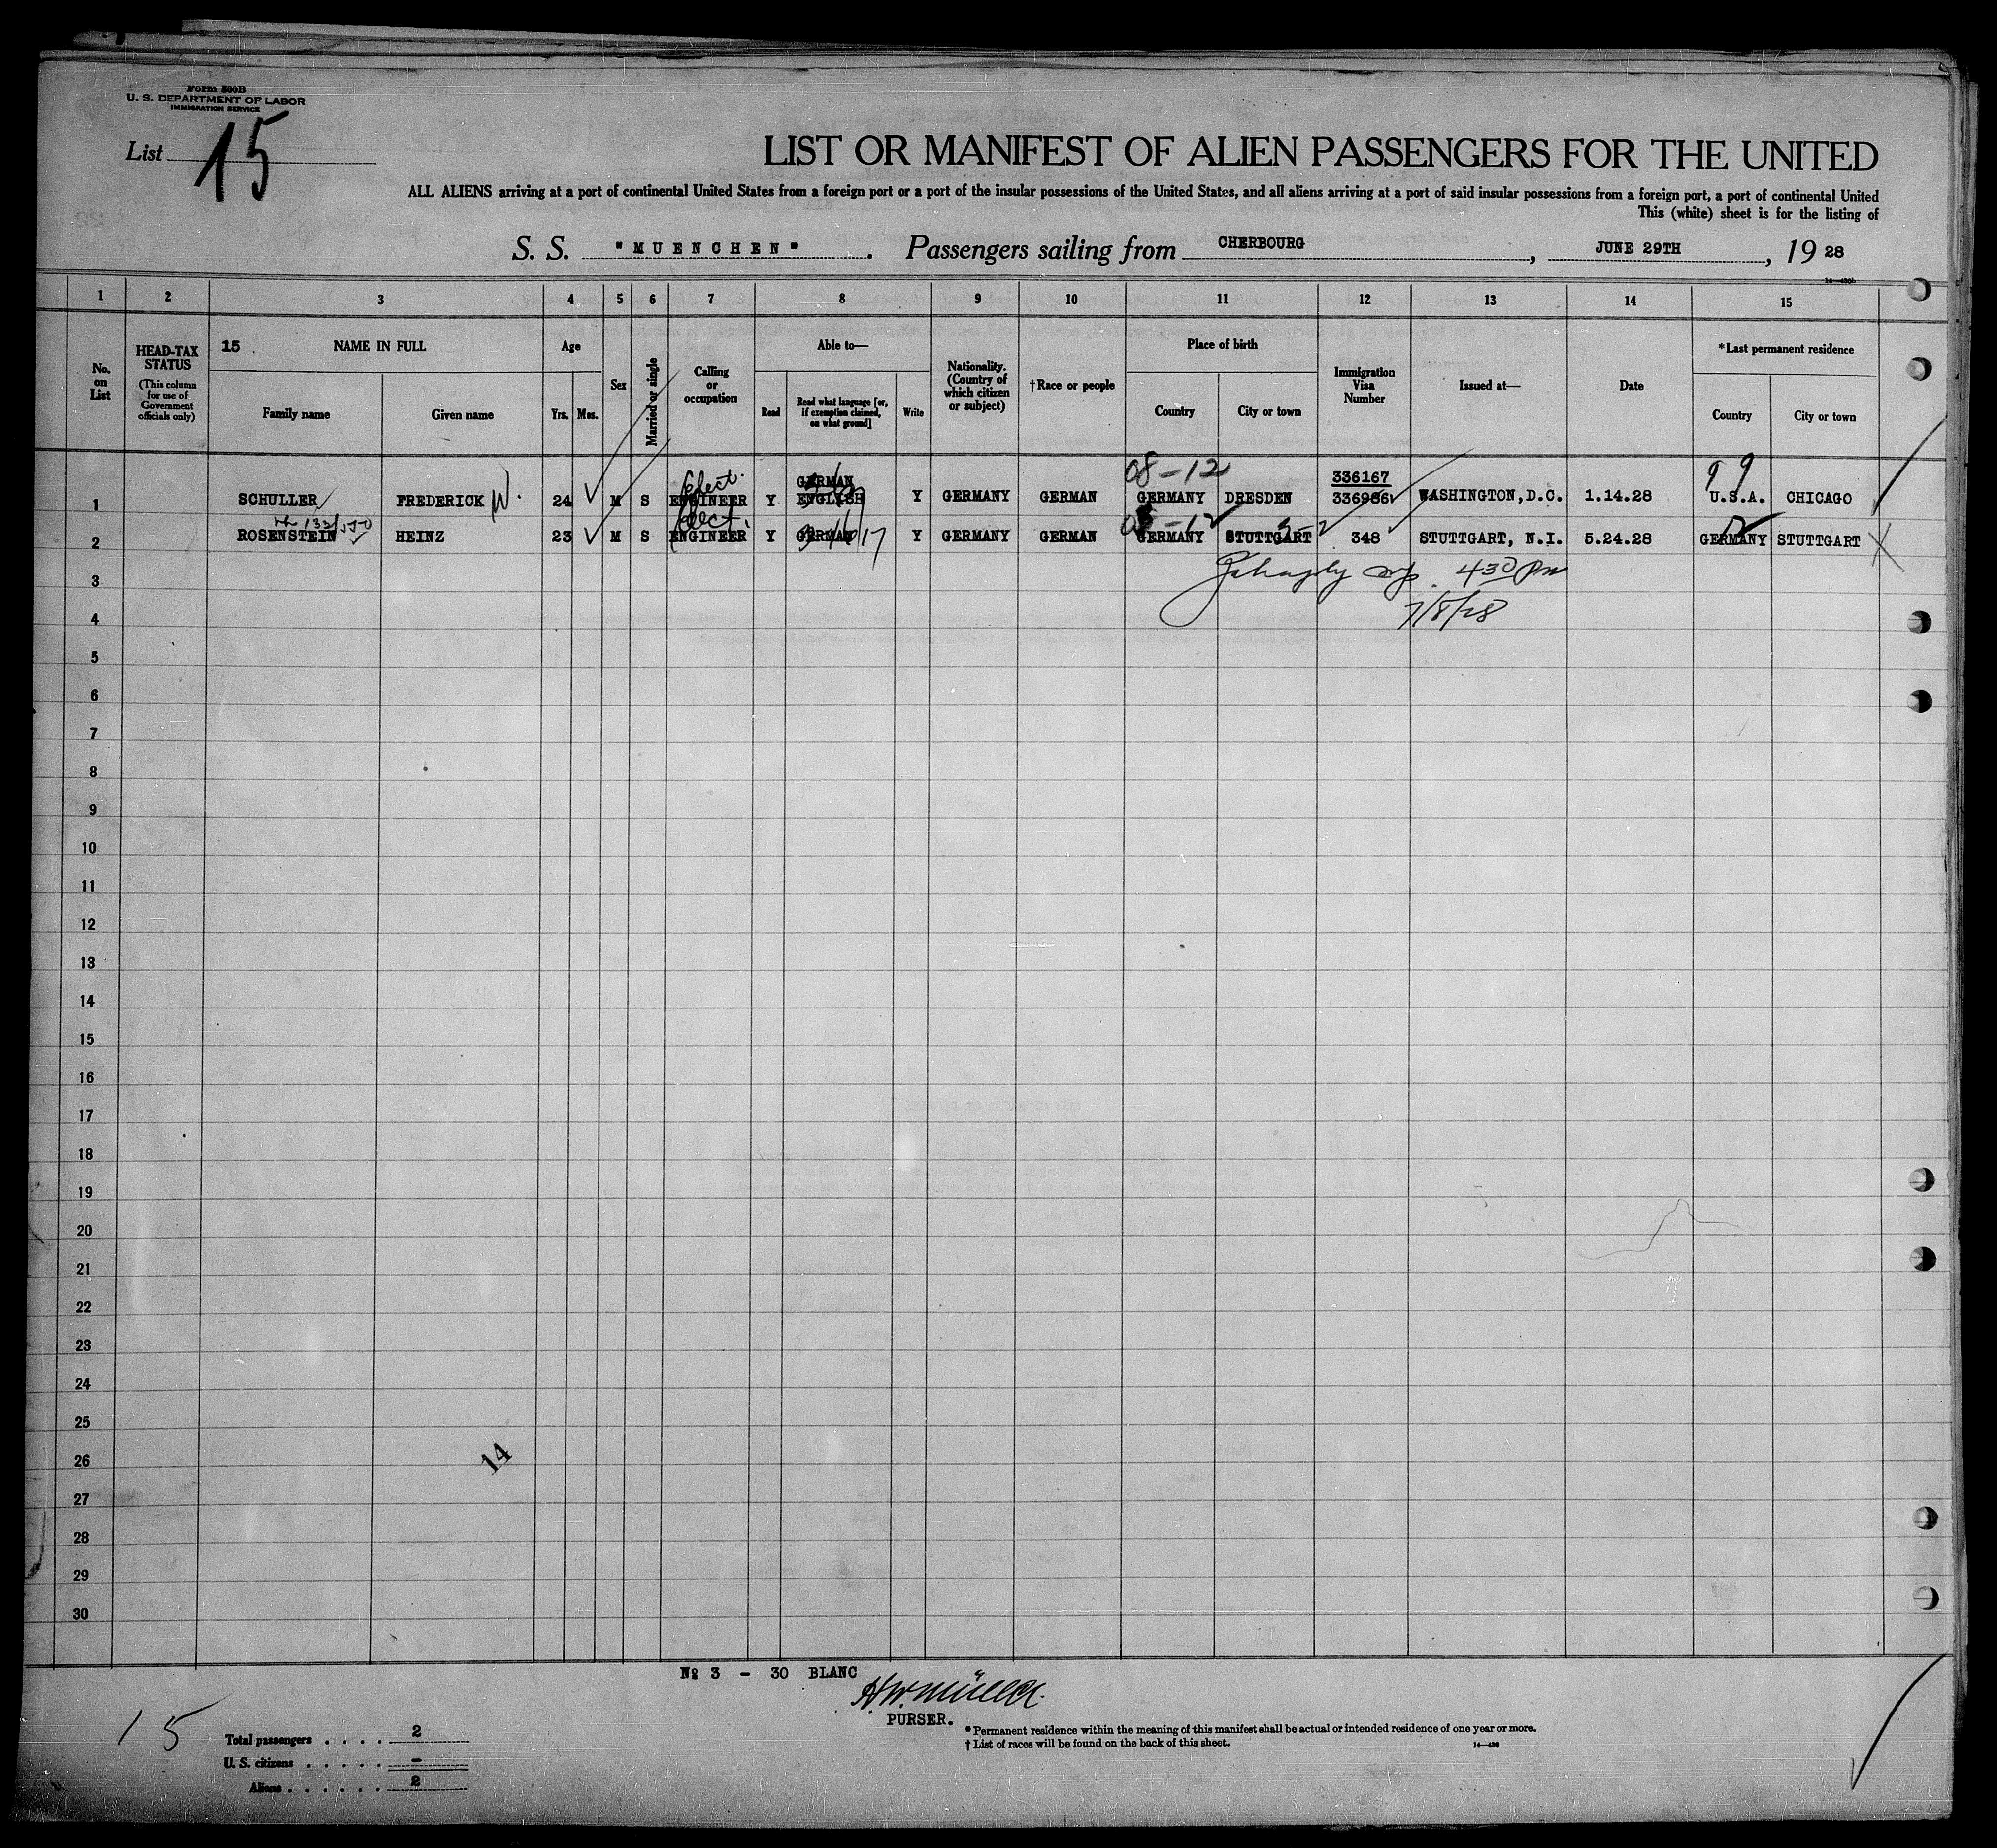 Form 500B
U. S. DEPARTMENT OF LABOR
IMMIGRATION SERVICE
List 15
LIST OR MANIFEST OF ALIEN PASSENGERS FOR THE UNITED
ALL ALIENS arriving at a port of continental United States from a foreign port or a port of the insular possessions of the United States, and all aliens arriving at a port of said insular possessions from a foreign port, a port of continental United
This (white) sheet is for the listing of
S. S. "MUENCHEN". Passengers sailing from CHERBOURG, JUNE 29TH, 19 28
1 2 3 4 5 6 7 8 9 10 11 12 13 14 15
No. on List
HEAD-TAX STATUS
(This column for use of Government officials only)
15 NAME IN FULL
Family name Given name
Age
Yrs. Mos.
Sex
Married or single
Calling or occupation
Able to—
Read
Read what language [or, if exemption claimed, on what ground]
Write
Nationality. (Country of which citizen or subject)
† Race or people
Place of birth
Country City or town
Immigration Visa Number
Issued at—
Date
*Last permanent residence
Country City or town
Elect. GERMAN 08-12 336167 99
1 SCHULLER FREDERICK W. 24 M S ENGINEER Y ENGLISH Y GERMANY GERMAN GERMANY DRESDEN 336986 WASHINGTON, D.C. 1.14.28 U.S.A. CHICAGO
Elect.
2 ROSENSTEIN HEINZ 23 M S ENGINEER Y GERMAN Y GERMANY GERMAN GERMANY STUTTGART 348 STUTTGART, N.I. 5.24.28 GERMANY STUTTGART
3 430 Pm
4 7/8/28
5
6
7
8
9
10
11
12
13
14
15
16
17
18
19
20
21
22
23
24
25
26
14
27
28
29
30
№ 3 - 30 BLANC
H.W. Müller.
PURSER.
* Permanent residence within the meaning of this manifest shall be actual or intended residence of one year or more.
† List of races will be found on the back of this sheet.
15
Total passengers . . . . 2
U. S. citizens . . . . . -
Aliens . . . . . . 2